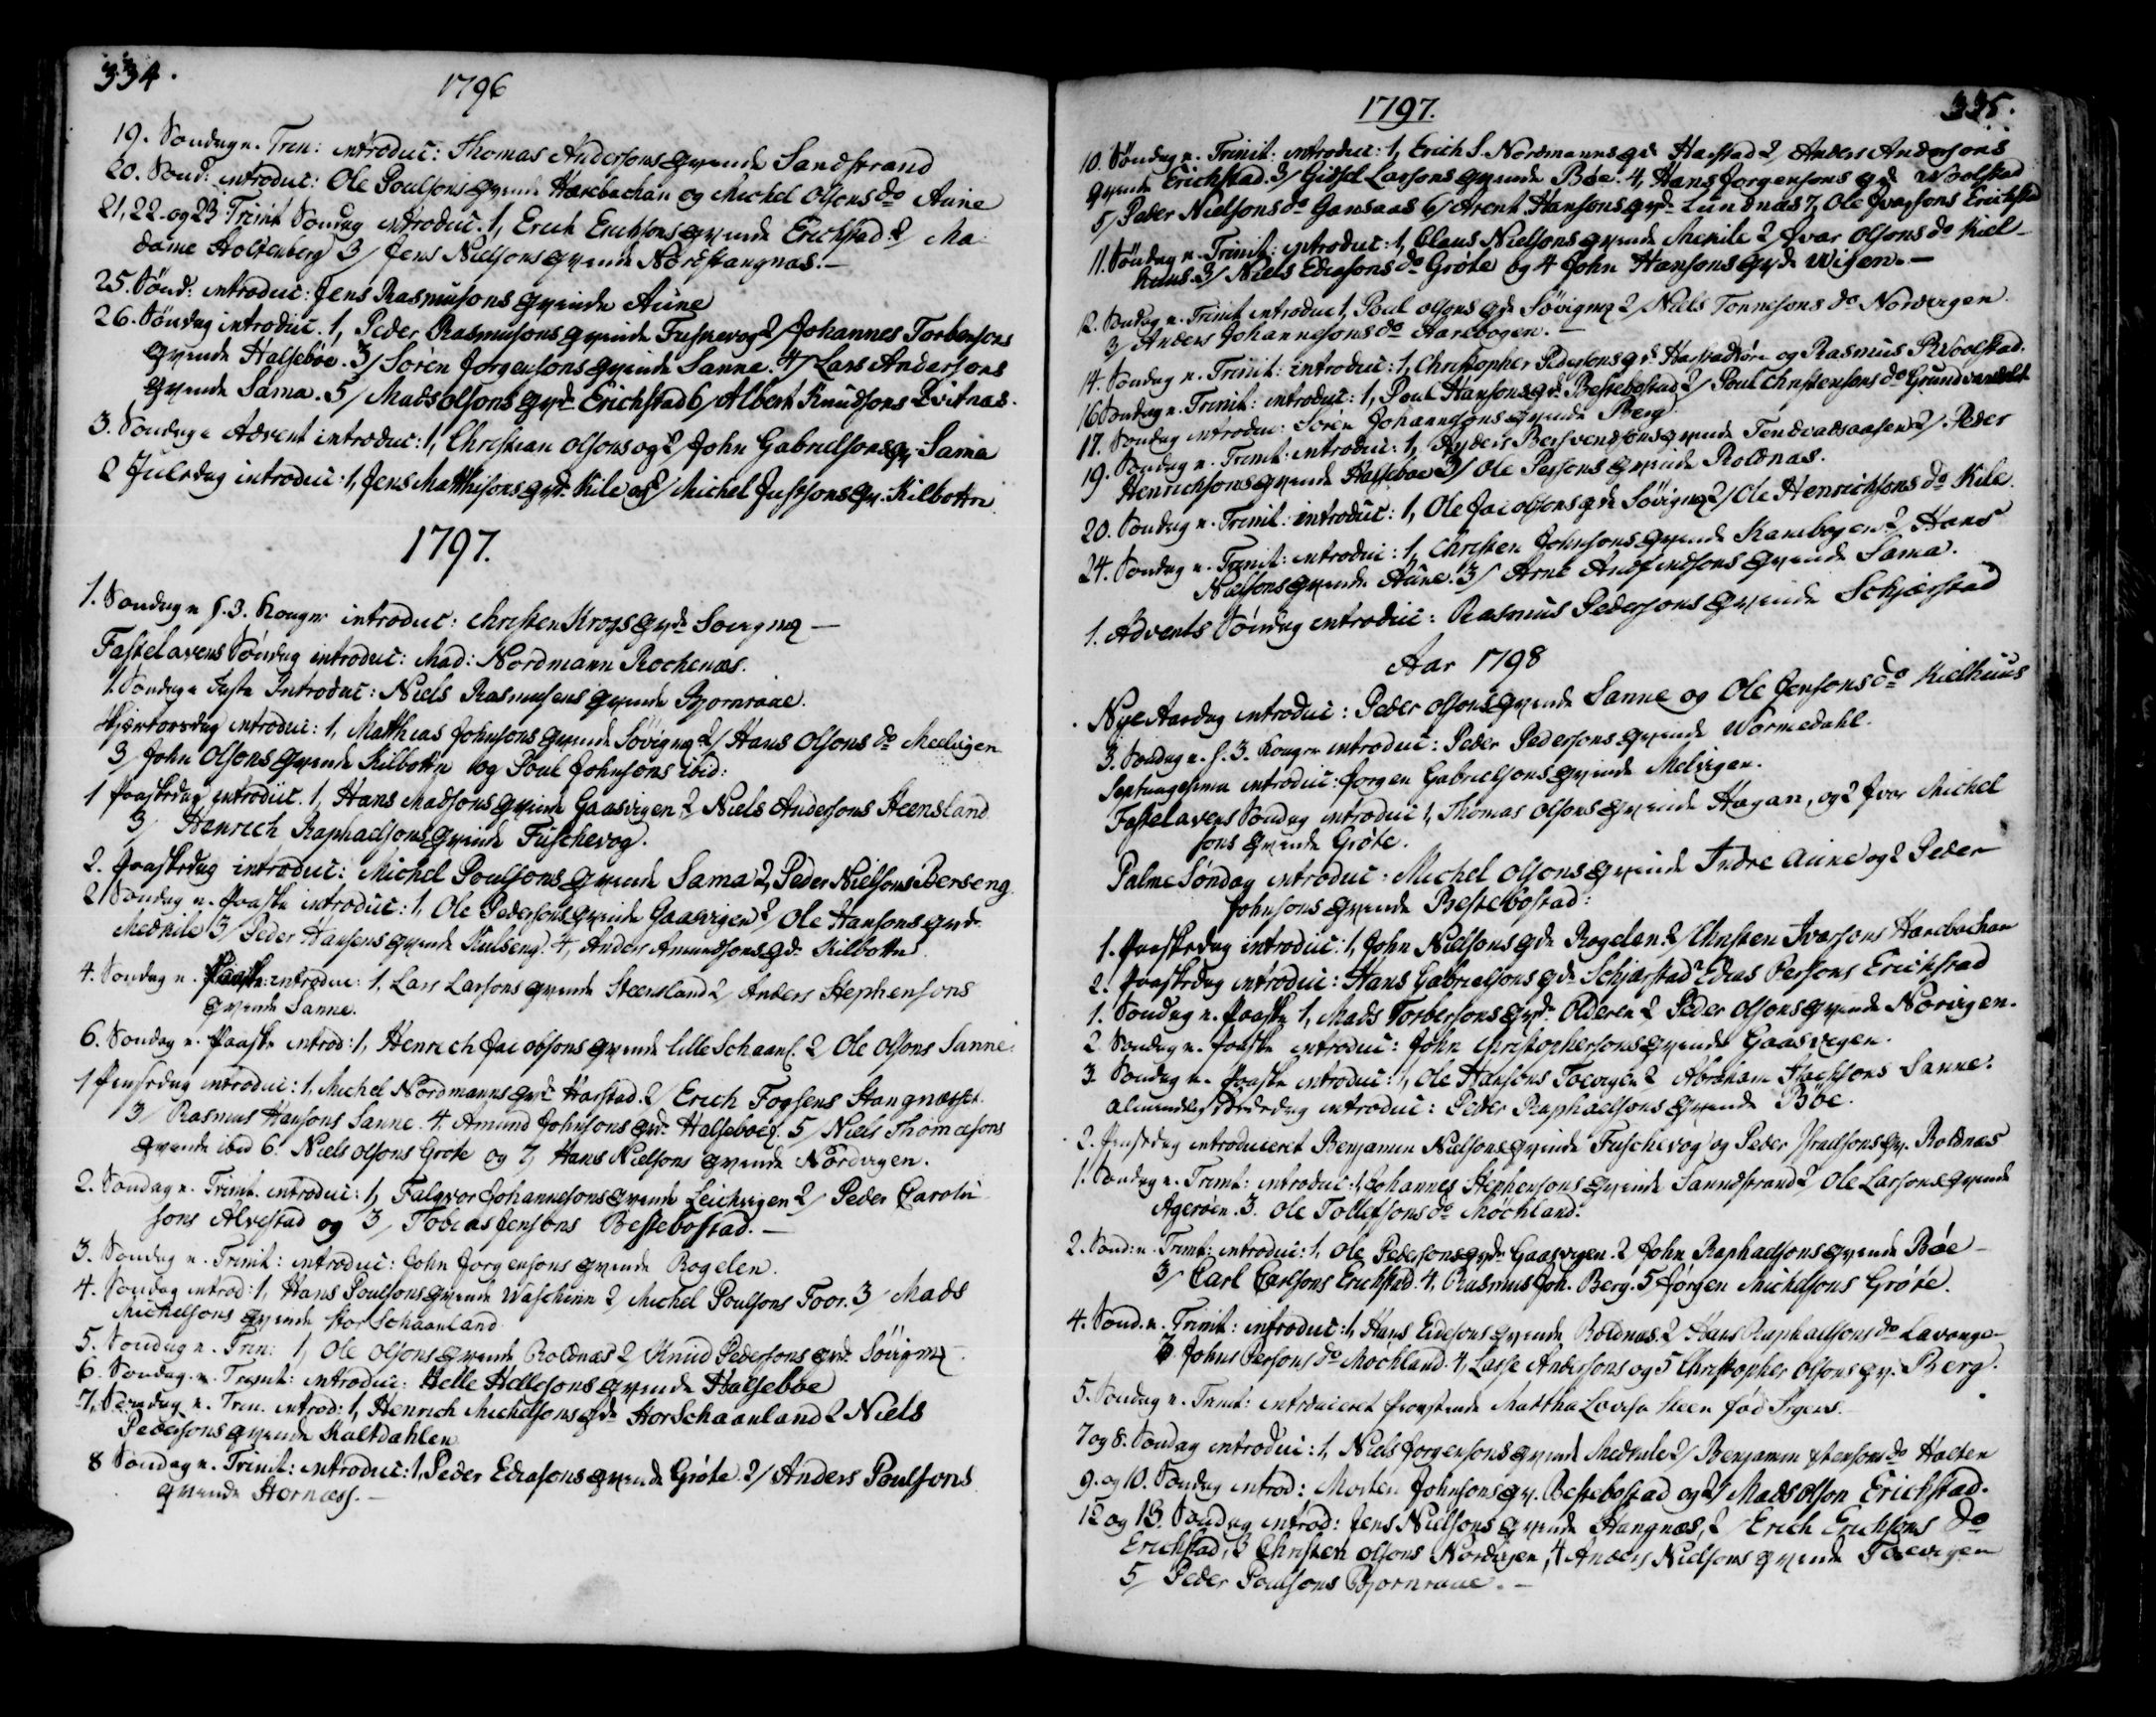 334.
1796
19. Søndag n. Tren: introduc: Thomas Andersons Qvinde Sandstrand
20. Sønd: introduc: Ole Poulsons Qvinde Harebachan og Michel Olsons do Aune
21, 22. og 23 Trinit Søndag introduc. 1, Erich Erichsons Qvinde Erichstad 2 Ma-
dame Holtenberg 3/ Jens Nielsons Qvinde Nordstangnas.-
25. Sønd: introduc: Jens Rasmusons Qvinde Aune
26. Søndag introduc. 1, Peder Rasmusons Qvinde Fuskevog 2/ Johannes Torbersons
Qvinde Halsebøe. 3/ Soren Jorgensons Qvinde Sanne. 4/ Lars Andersons
Qvinde Sama. 5/ Mads Olsons Qvde Erichstad 6/ Albert Knudsons Qvitnas.
3. Søndag i Advent introduc: 1, Christian Olsons og 2/ John Gabrielsons Qv. Sama
2 Juledag introduc: 1, Jens Matthisons Qvd. Kile og 2/ Michel Justsons Qv. Kilbottn
1797.
1. Søndag n H. 3. Konger introduc: Christen Kroys Qvde Sovigng -
Fastelavens Søndag introduc: Mad: Nordmann Rochenæs.
1. Søndag i Faste Introduc: Niels Rasmusens Qvinde Bjornraae.
Skiertorsdag introduc: 1, Matthias Johnsons Qvinde Søvigng 2/ Hans Olsons do Meelvigen
3/ John Olsons Qvinde Kilbottn og Poul Johnsons ibid:
1 Paaskedag introduc. 1, Hans Madsons Qvinde Gaasvigen 2 Niels Andersons Steensland
3/ Henrich Raphaelsons Qvinde Fuschevog.
2. Paaskedag introduc: Michel Poulsons Qvinde Sama 2, Peder Nielsons Berseng.
2 Søndag n. Paaske introduc: 1, Ole Pedersons Qvinde Gaasvigen 2/ Ole Hansons Qvde
Medkile 3/ Peder Hansens Qvinde Kulseng. 4, Anders Amundsons Qde Kilbottn
4. Søndag n. Paaske: introduc: 1, Lars Larsons Qvinde Steensland 2/ Anders Stephensons
Qvinde Sanne.
6. Søndag n. Paaske introd: 1, Henrich Jacobsons Qvinde lille Schaanl. 2/ Ole Olsons Sanne.
1 Pinsedag introduc: 1, Michel Nordmanns Qvde Harstad. 2/ Erich Fogsens Stangnæsset.
3/ Rasmus Hansons Sanne. 4. Amund Johnsons Qvde Halsebøe. 5/ Niels Thomæsons
Qvinde ibid 6. Niels Olsons Grøte og 7, Hans Nielsons Qvinde Nordvigen.
2. Søndag n. Trinit. introduc: 1, Falqvor Johannesons Qvinde Leichvigen 2/ Peder Carolu-
sons Alvestad og 3/ Tobias Jensons Bestebostad.-
3. Søndag n. Trinit: introduc: John Jorgensons Qvinde Rogelen.
4. Søndag introd: 1, Hans Poulsons Qvinde Waschinn 2/ Michel Poulsons Foor. 3/ Mads
Michelsons Qvinde Stor Schaanland
5. Søndag n. Tren: 1, Ole Olsons Qvinde Roldnæs 2/ Knud Pedersons Qvde Søvigng.
6. Søndag n. Trinit: introduc: Helle Hellesons Qvinde Halsebøe
7. Søndag n. Tren. introd: 1, Henrich Michelsons Qde Stor Schaanland 2 Niels
Pedersons Qvinde Kaltdahlen
8 Søndag n. Trinit: introduc: 1, Peder Ediasons Qvinde Grøte. 2/ Anders Poulsons
Qvinde Hornæss.-
1797.
335.
10. Søndag n. Trinit: introduc: 1, Erich S. Nordmanns Qde Harstad 2/ Anders Andersons
Qvinde Erichstad. 3/ Gidsel Larsons Qvinde Bøe. 4, Hans Jorgensons Qd Woolstad
5/ Peder Nielsons do Gansaas 6/ Arent Hansons Qvde Lundnæs 7, Ole Ivarsons Erichstad
11. Søndag n. Trinit: introduc: 1, Claus Nielsons Qvinde Mekile 2/ Ivar Olsons do Kiel-
huus. 3/ Niels Ediasons do Grøte og 4 John Hansons Qvde Wigen.-
12. Søndag n. Trinit introduc 1, Poul Olsons Qde Søvigng 2/ Niels Tonnesons do Nordvigen.
3/ Anders Johannesons do Aarebogen.-
14. Søndag n. Trinit: introduc: 1, Christopher Pedersons Qd. og Rasmus P. Woolstad.
16 Søndag n. Trinit: introduc: 1, Poul Hansons Qd. Bestebostad 2/ Poul Christensens do
17. Søndag introduc: Sören Johannesons Qvinde Berg.
19. Søndag n. Trinit: introduc: 1, Anders Bersvendsons Qvinde Tendradsaasen 2/ Peder
Henrichsons Qvinde Halsebøe 3/ Ole Persons Qvinde Roldnæs.
20. Søndag n. Trinit: introduc: 1, Ole Jacobsons Qde Søvigng 2/ Ole Henrichsons do Kile.
24. Søndag n. Trinit: introduc: 1, Christen Johnsons Qvinde Kanebogen 2/ Hans
Nielsons Qvinde Aune. 3/ Arne Andfindsons Qvinde Sama.
1. Advents Søndag introduc: Rasmus Pedersons Qvinde Schjærstad
Aar 1798
Nye Aarsdag introduc: Peder Olsons Qvinde Sanne og Ole Jensons do Kielhuus
3. Søndag n. H. 3. Konger introduc: Peder Pedersons Qvinde Wormedahl.
Septuagesima introduc: Jorgen Gabrielsons Qvinde Melvigen.
Fastelavens Søndag introduc 1, Thomas Olsons Qvinde Hagan, og 2 Ivar Michel
sons Qvinde Grøte.
Palme Søndag introduc: Michel Olsons Qvinde Indre Aune og 2 Peder
Johnsons Qvinde Bestebostad:
1. Paaskedag introduc: 1, John Nielsons Qde Rogelen. 2/ Christen Ivarsons Harebachan
2. Paaskedag introduc: Hans Gabrielsons Qde Schjærstad 2 Edias Persons Erichstad
1. Søndag n. Paaske 1, Mads Torbersons Qvde Olderen 2 Peder Olsons Qvinde Norvigen.
2 Søndag n. Paaske introduc: John Christophersons Qvinde Gaasvigen.
3. Søndag n. Paaske introduc: 1, Ole Hansons Toevigen 2 Abraham Isachsons Sanne.
Almindelig Bededag introduc: Peder Raphaelsons Qvinde Bøe.
2. Pinsedag introduceret Benjamin Nielsons Qvinde Fuschevog og Peder Qv. Roldnæs
1. Søndag n. Trinit: introduc: 1, Johannes Stephensons Qvinde Sanndstrand 2/ Ole Larsons Qvinde
Agerøen. 3. Ole Tollefsons do Møchland.
2. Sønd: n. Trinit: introduc: 1, Ole Pedersons Qvde Gaasvigen. 2 John Raphaelsons Qvinde Bøe -
3/ Carl Carlsons Erichstad. 4, Rasmus Joh. Berg. 5 Jörgen Michelsons Grøte.
4. Sønd. n. Trinit: introduc: 1, Hans Eidesons Qvinde Roldnas. 2 Hans Raphaelsons do Lavange-
3. Johns Persons do Møchland. 4, Lasse Andersons og 5 Christopher Olsons Qv. Berg.
5. Søndag n. Trinit: introduceret Provstinde Martha Lovisa Steen fød
7 og 8. Søndag introduc: 1, Niels Jorgensons Qvinde Medkile 2/ Benjamin do Holten
9. og 10. Søndag introd: Morten Johnsons Qv. Bestebostad og 2/ Mads Olson Erichstad.
12 og 13. Søndag introd: Jens Nielsons Qvinde Stangnæs, 2/ Erich Erichsons do
Erichstad, 3 Christen Olsons Nordvigen, 4 Anders Nielsons Qvinde Toevigen
5/ Peder Poulsons Bjornraae.-